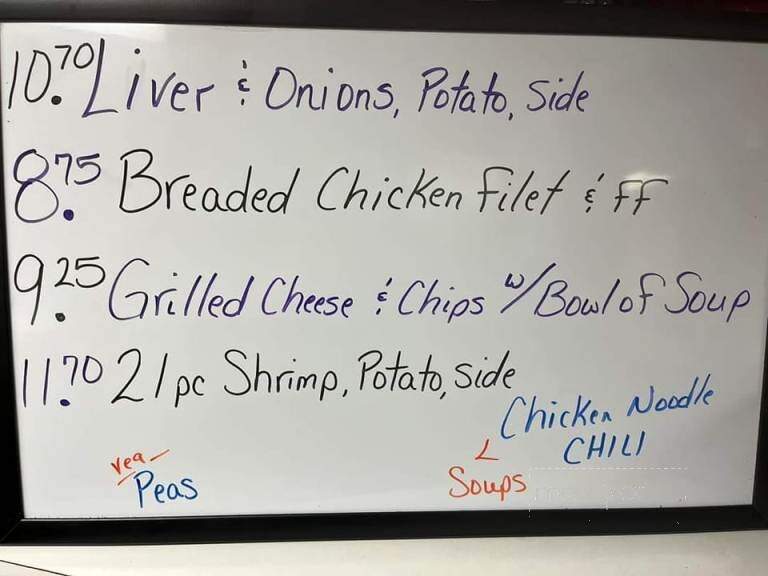 10.70 Liver & Onions, Potato, Side
8.75 Breaded Chicken Filet & ff
9.25 Grilled Cheese & Chips w/ Bowl of Soup
11.70 21 pc Shrimp, Potato, Side
Chicken Noodle
CHILI
Veg
Peas
Soups